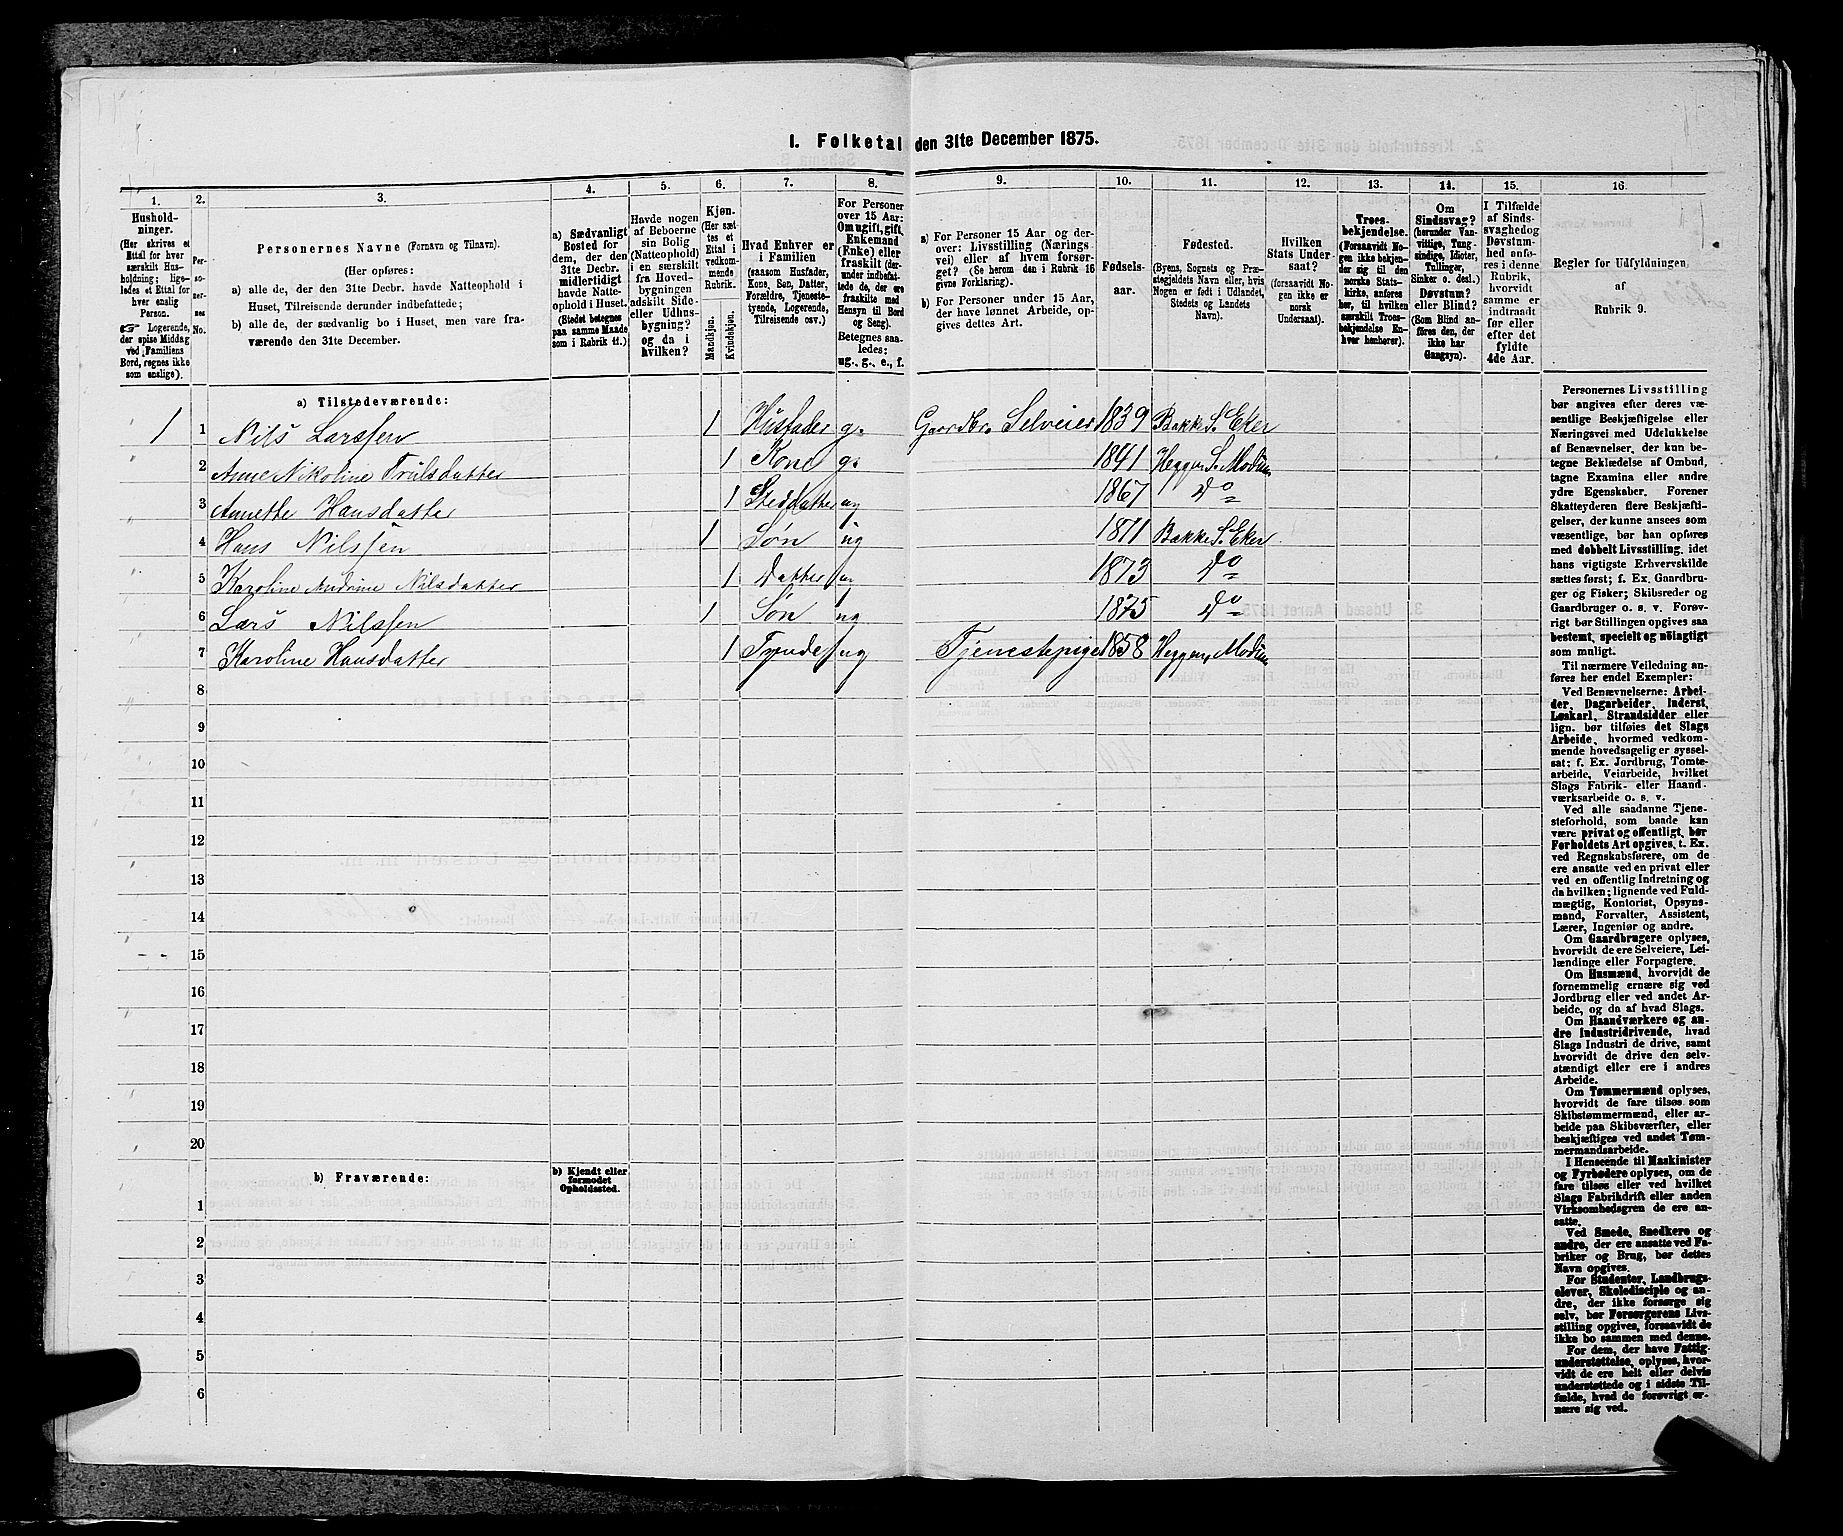 I. Folketal den 31te December 1875.
1. 2. 3. 4. 5. 6. 7. 8. 9. 10. 11. 12. 13. 14. 15. 16.
Hushold-
ninger.
(Her skrives et
Ettal for hver
særskilt Hus-
holdning; lige-
ledes et Ettal for
hver enslig
Person.
☞ Logerende,
der spise Middag
ved Familiens
Bord, regnes ikke
som enslige).
Per-
so-
ner-
nes
No.
Personernes Navne (Fornavn og Tilnavn).
(Her opføres:
a) alle de, der den 31te Decbr. havde Natteophold i
Huset, Tilreisende derunder indbefattede;
b) alle de, der sædvanlig bo i Huset, men vare fra-
værende den 31te December.
a) Sædvanligt
Bosted for
dem, der den
31te Decbr.
midlertidigt
havde Natte-
ophold i Huset.
(Stedet betegnes
paa samme Maade
som i Rubrik 11.)
Havde nogen
af Beboerne
sin Bolig
(Natteophold)
i en særskilt
fra Hoved-
bygningen
adskilt Side-
eller Udhus-
bygning?
og da i
hvilken?
Kjøn.
(Her sæt-
tes et
Ettal i
vedkom-
mende
Rubrik.
Mandkjøn.
Kvindekjøn.
Hvad Enhver er
i Familien
(saasom Husfader,
Kone, Søn, Datter,
Forældre, Tjeneste-
tyende, Logerende,
Tilreisende osv.)
For Personer
over 15 Aar:
Om ugift, gift,
Enkemand
(Enke) eller
fraskilt (der-
under indbefat-
tede de, der ere
fraskilte med
Hensyn til Bord
og Seng).
Betegnes saa-
ledes:
ug., g., e., f.
a) For Personer 15 Aar og der-
over: Livsstilling (Nærings-
vei) eller af hvem forsør-
get? (Se herom den i Rubrik 16
givne Forklaring).
b) For Personer under 15 Aar,
der have lønnet Arbeide, op-
gives dettes Art.
Fødsels-
aar.
Fødested.
(Byens, Sognets og Præ-
stegjeldets Navn eller, hvis
Nogen er født i Udlandet,
Stedets og Landets
Navn).
Hvilken
Stats Under-
saat?
(forsaavidt No-
gen ikke er
norsk
Undersaat).
Troes-
bekjendelse.
(Forsaavidt No-
gen ikke bekjen-
der sig til den
norske Stats-
kirke, anføres
her, til hvilken
særskilt Troes-
bekjendelse En-
hver henhører).
Om
Sindssvag?
(herunder Van-
vittige, Tung-
sindige, Idioter,
Tullinger,
Sinker o. desl.)
Døvstum?
eller Blind?
(Som Blind an-
føres den, der
ikke har
Gangsyn).
I Tilfælde
af Sinds-
svaghed og
Døvstum-
hed anfø-
res i denne
Rubrik,
hvorvidt
samme er
indtraadt
før eller
efter det
fyldte
4de Aar.
Regler for Udfyldningen
af
Rubrik 9.
a) Tilstedeværende:
1 1 Nils Larssen 1 Husfader g. Gaardbr. Selveier 1839 Bakke S. Eker
2 Anne Nikoline Trulsdatter 1 Kone g. 1841 Heggen S. Modum
3 Annette Hansdatter 1 Steddatter ug 1867 Do
4 Hans Nilssen 1 Søn ug 1871 Bakke S. Eker
5 Karoline Andrine Nilsdatter 1 Datter 1873 Do
6 Lars Nilssen 1 Søn ug 1875 Do
7 Karoline Hansdatter 1 Tyende ug Tjenestepige 1858 Heggen, Modum
8
9
10
11
12
13
14
15
16
17
18
19
20
b) Fraværende:
b) Kjendt eller
formodet
Opholdssted.
1
2
3
4
5
6
Personernes Livsstilling
bør angives efter deres væ-
sentlige Beskjæftigelse eller
Næringsvei med Udelukkelse
af Benævnelser, der kun be-
tegne Beklædelse af Ombud,
tagne Examina eller andre
ydre Egenskaber. Forener
Skatteyderen flere Beskjæfti-
gelser, der kunne ansees som
væsentlige, bør han opføres
med dobbelt Livsstilling, idet
hans vigtigste Erhvervskilde
sættes først; f. Ex. Gaardbru-
ger og Fisker; Skibsreder og
Gaardbruger o. s. v. Forøv-
rigt bør Stillingen opgives saa
bestemt, specielt og nøiagtigt
som muligt.
Til nærmere Veiledning an-
føres her endel Exempler:
Ved Benævnelserne: Arbei-
der, Dagarbeider, Inderst,
Løskarl, Strandsidder eller
lign. bør tilføies det Slags
Arbeide, hvormed vedkom-
mende hovedsagelig er syssel-
sat; f. Ex. Jordbrug, Tomte-
arbeide, Veiarbeide, hvilket
Slags Fabrik- eller Haand-
værksarbeide o. s. v.
Ved alle saadanne Tjene-
steforhold, som baade kan
være privat og offentligt, bør
Forholdets Art opgives, t. Ex.
ved Regnskabsførere, om de
ere ansatte ved en privat eller
ved en offentlig Indretning og
da hvilken; lignende ved Fuld-
mægtig, Kontorist, Opsyns-
mand, Forvalter, Assistent,
Lærer, Ingeniør og andre.
Om Gaardbrugere oplyses,
hvorvidt de ere Selveiere, Lei-
lændinge eller Forpagtere.
Om Husmænd, hvorvidt de
fornemmelig ernære sig ved
Jordbrug eller ved andet Ar-
beide, og da af hvad Slags.
Om Haandværkere og an-
dre Industridrivende, hvad
Slags Industri de drive, samt
hvorvidt de drive den selv-
stændigt eller ere i andres
Arbeide.
Om Tømmermænd oplyses,
hvorvidt de fare tilsøs som
Skibstømmermænd, eller ar-
beide paa Skibsværfter, eller
beskjæftiges ved andet Tøm-
mermandsarbeide.
I Henseende til Maskinister
og Fyrbødere oplyses, om de
fare tilsøs eller ved hvilket
Slags Fabrikdrift eller anden
Virksomhedsgren de ere an-
satte.
Ved Smede, Snedkere og
andre, der ere ansatte ved Fa-
briker og Brug, bør dettes
Navn opgives.
For Studenter, Landbrugs-
elever, Skoledisciple og an-
dre, der ikke forsørge sig
selv, bør Forsørgerens Livs-
stilling opgives, forsaavidt de
ikke bo sammen med denne.
For dem, der have Fattig-
understøttelse, oplyses, hvor-
vidt de ere helt eller delvis
understøttede og i sidste Til-
fælde, hvad de forøvrigt er-
nære sig ved.